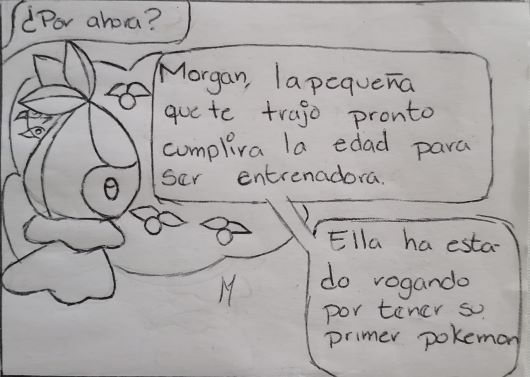 ¿Por ahora?
Morgan, la pequeña
que te trajo pronto
cumplira la edad para
ser entrenadora.
Ella ha esta-
do rogando
por tener su
primer pokemon
M